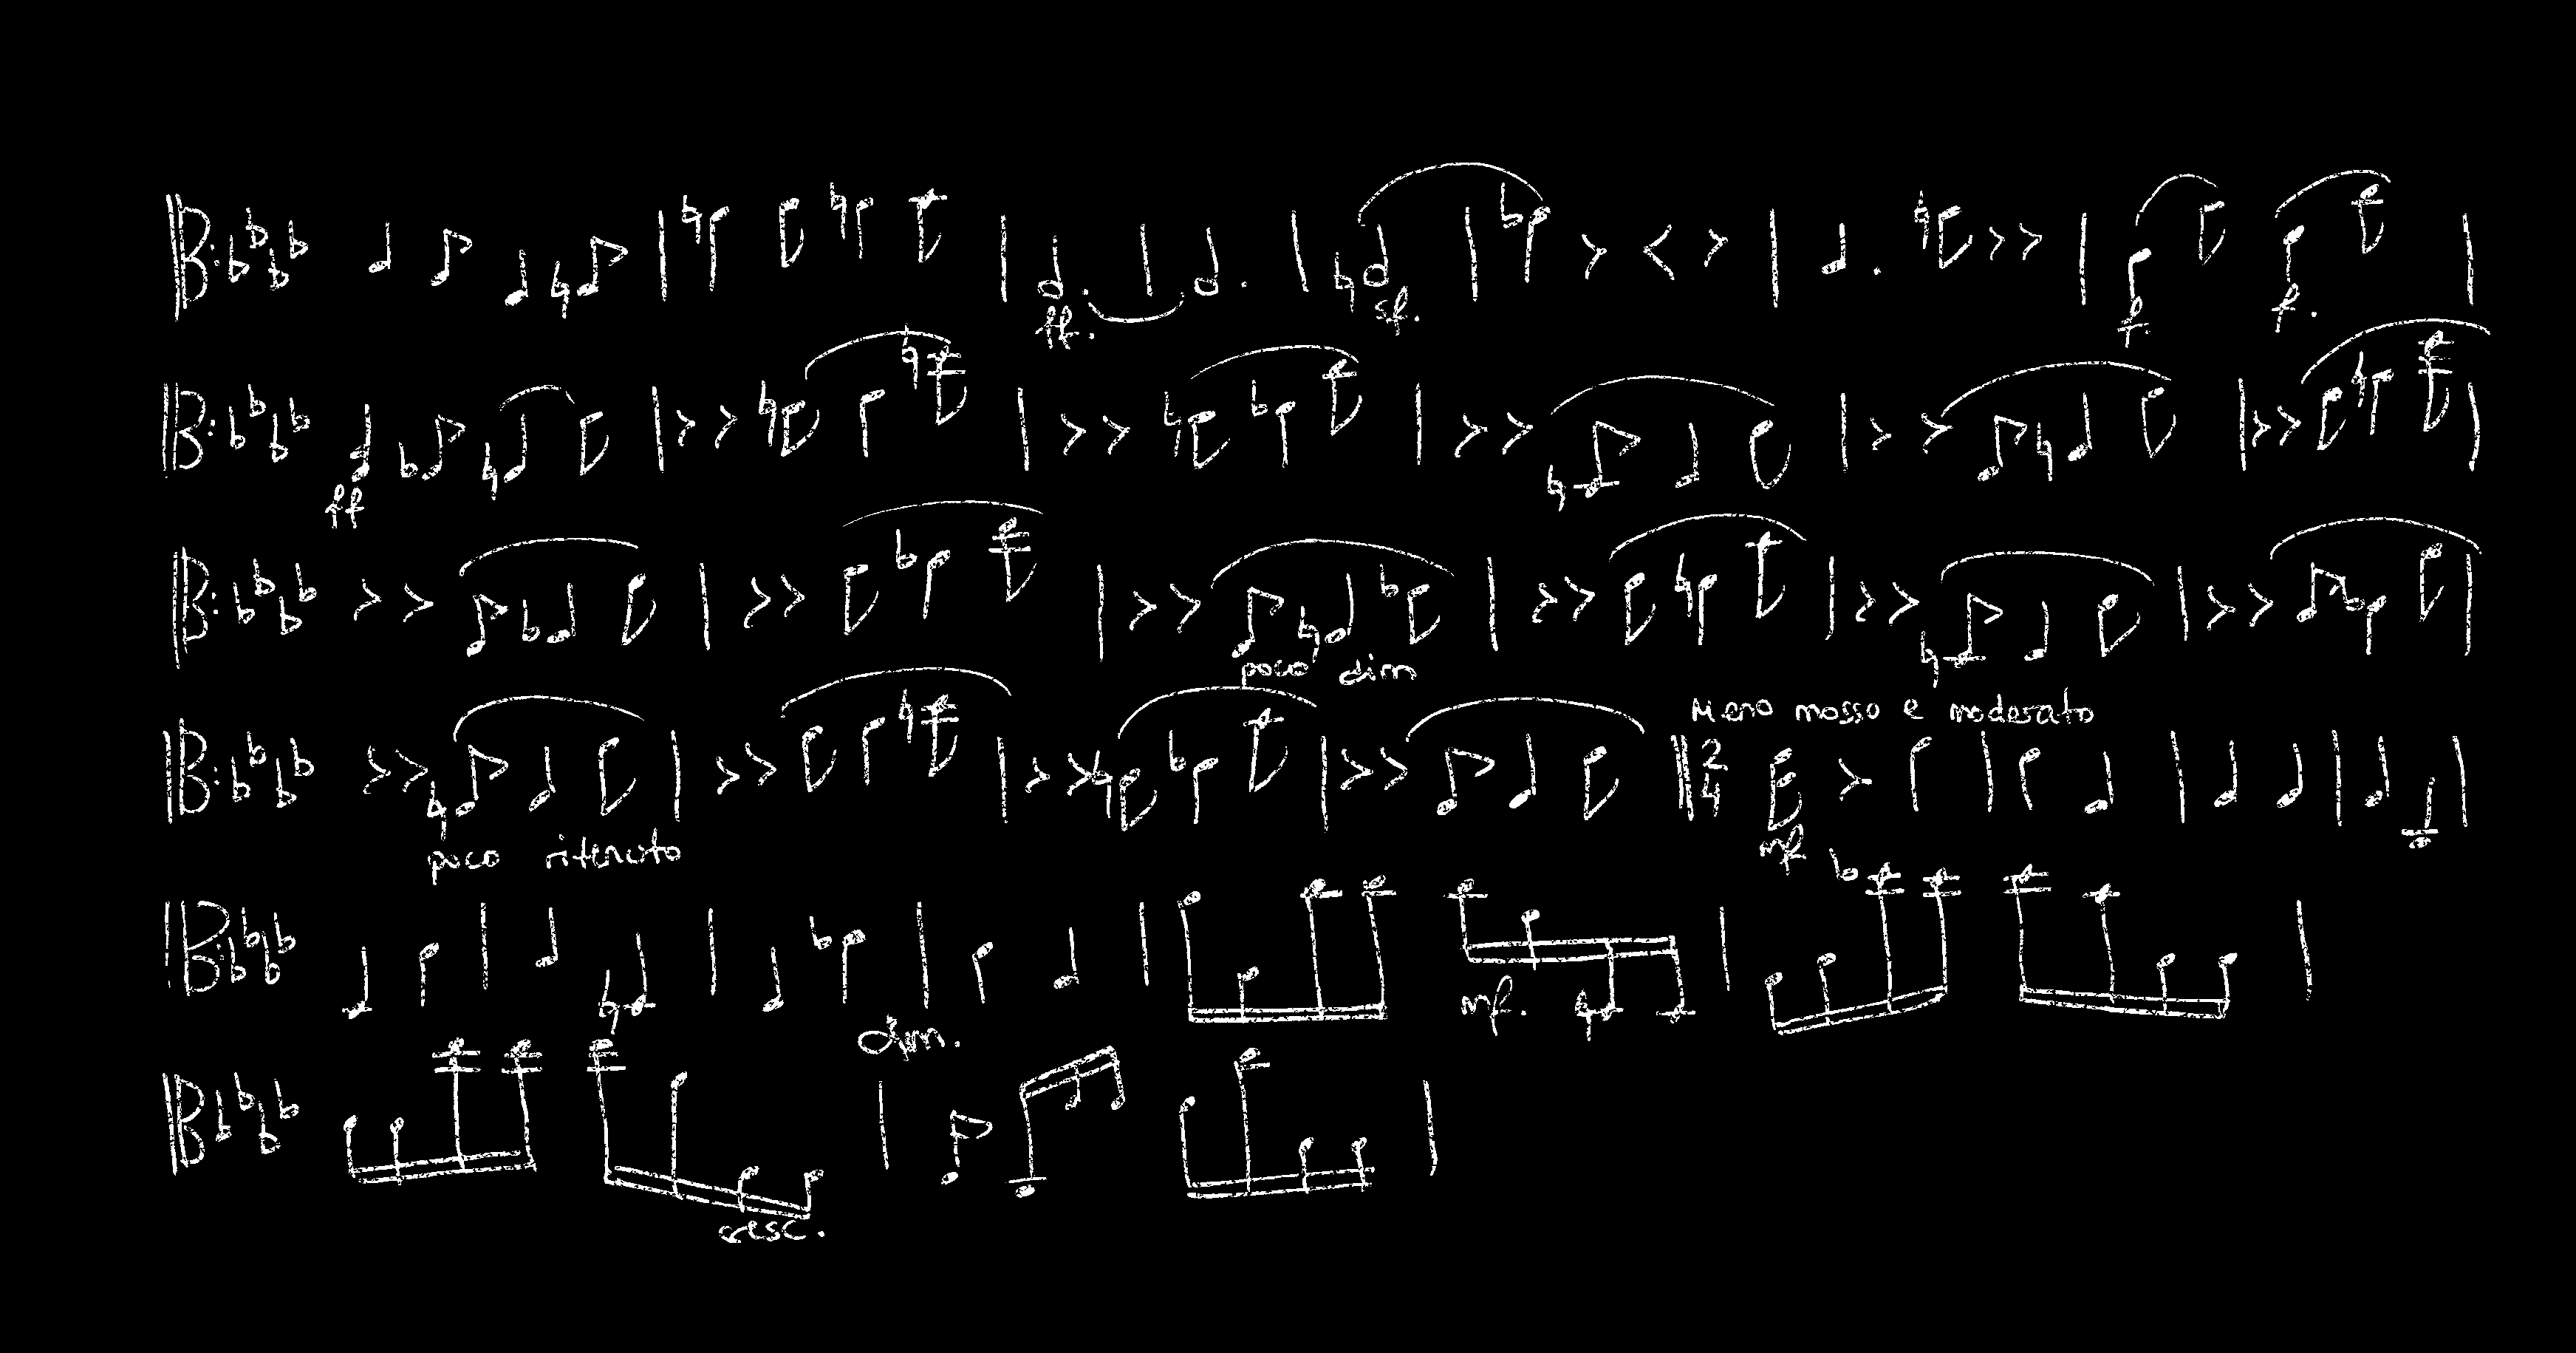 ff. sf. f. f.
ff
poco dim
Meno mosso e moderato
2
4
mf
poco ritenuto
mf.
dim.
cresc.